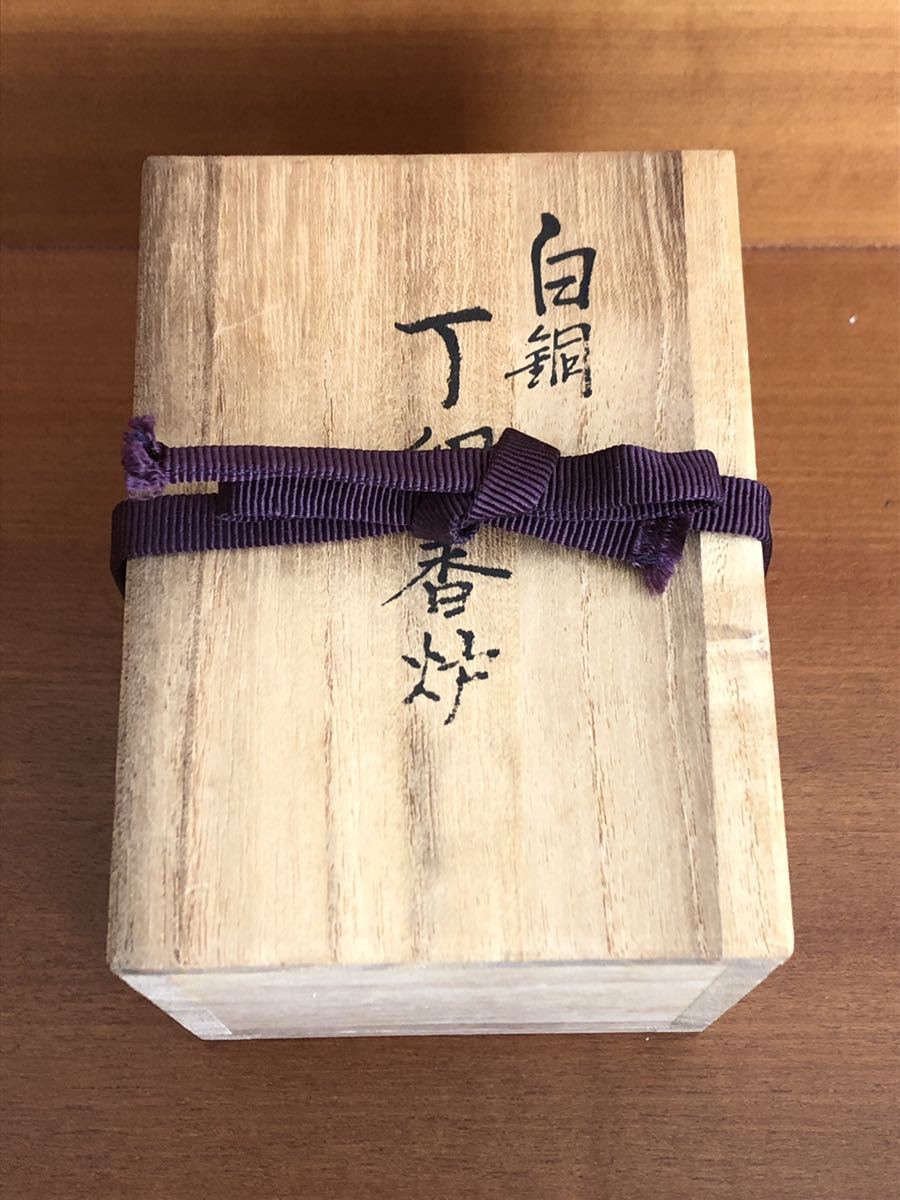 白銅
丁 香炉